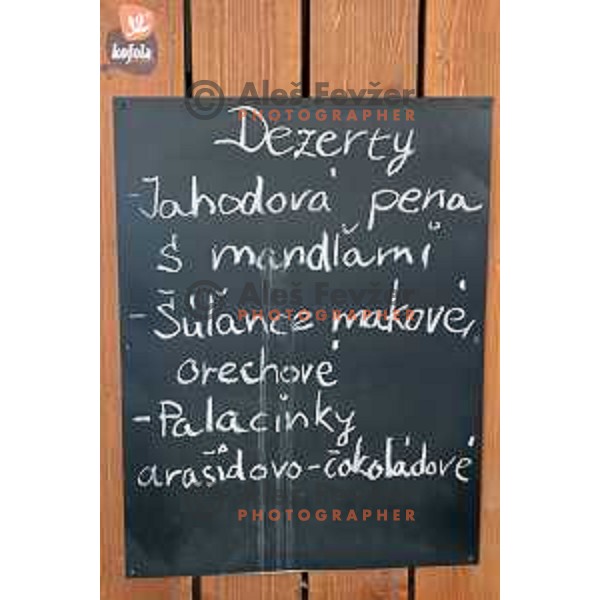 kofola
Dezerty
-Jahodová pena
s mandľami
-Šúľance makové,
orechové
-Palacinky
arašidovo-čokoládové
© Aleš Fevžer
PHOTOGRAPHER
© Aleš Fevžer
PHOTOGRAPHER
PHOTOGRAPHER